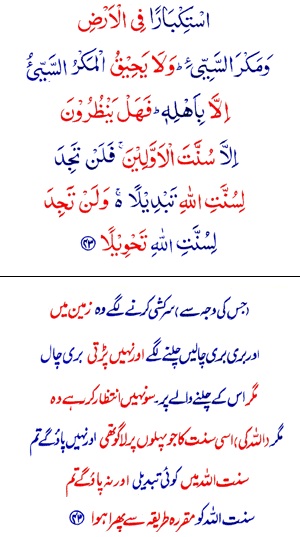 اسْتِكْبَارًا فِى الْاَرْضِ
وَمَكْرَ السَّيِّئِ ؕ وَلَا يَحِيْقُ الْمَكْرُ السَّيِّئُ
اِلَّا بِاَهْلِهٖ ؕ فَهَلْ يَنْظُرُوْنَ
اِلَّا سُنَّتَ الْاَوَّلِيْنَ ۚ فَلَنْ تَجِدَ
لِسُنَّتِ اللّٰهِ تَبْدِيْلًا ۚ۬ وَلَنْ تَجِدَ
لِسُنَّتِ اللّٰهِ تَحْوِيْلًا ﴿۴۳﴾
(جس کی وجہ سے) سرکشی کرنے لگے وہ زمین میں
اور بری بری چالیں چلنے لگے اور نہیں پڑتی بری چال
مگر اس کے چلنے والے پر۔ سو نہیں انتظار کر رہے وہ
مگر (اللہ کی) اسی سنت کا جو پہلوں پر لاگو تھی اور نہیں پاؤ گے تم
سنت اللہ میں کوئی تبدیلی اور نہ پاؤ گے تم
سنت اللہ کو مقررہ طریقہ سے پھرا ہوا ﴿۴۳﴾